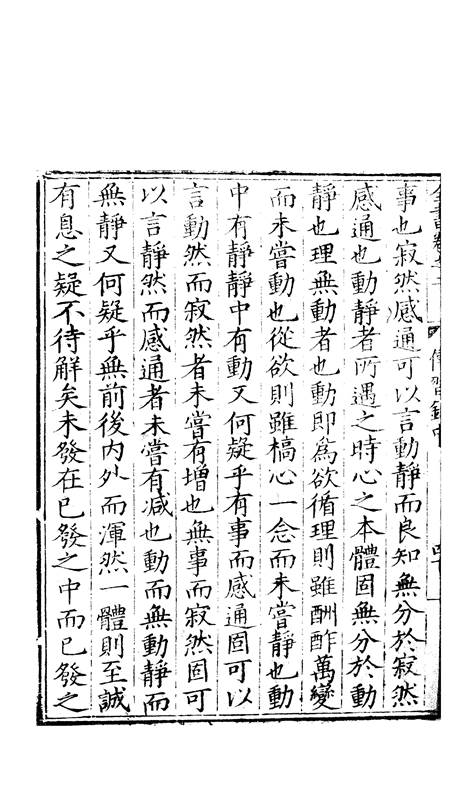 事也寂然感通可以言動靜而良知無分於寂然
感通也動靜者所遇之時心之本體固無分於動
靜也理無動者也動即為欲循理則雖酬酢萬變
而未嘗動也從欲則雖槁心一念而未嘗靜也動
中有靜靜中有動又何疑乎有事而感通固可以
言動然而寂然者未嘗有增也無事而寂然固可
以言靜然而感通者未嘗有減也動而無動靜而
無靜又何疑乎無前後內外而渾然一體則至誠
有息之疑不待解矣未發在已發之中而已發之